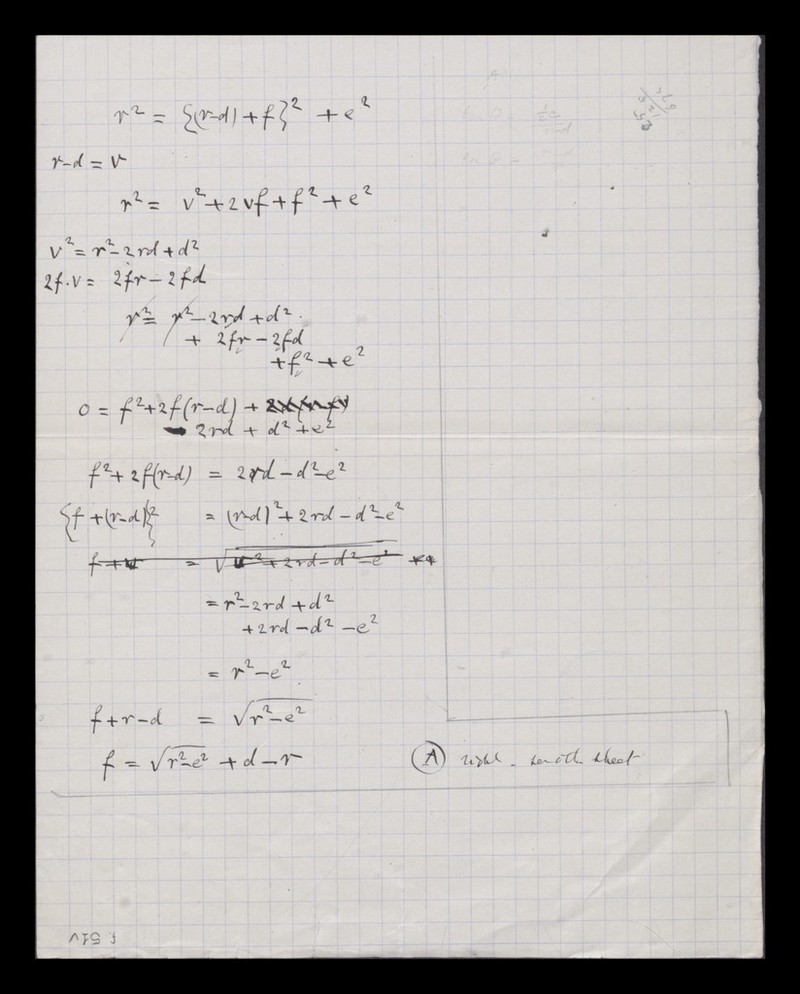 r² = {(r-d) + f}² + e²
r-d = v
r² = v² + 2vf + f² + e²
v² = r² - 2rd + d²
2f.v = 2fr - 2fd
r² = r² - 2rd + d²
+ 2fr - 2fd
+ f² + e²
0 = f² + 2f(r-d) +
- 2rd + d² + e²
f² + 2f(r-d) = 2rd - d² - e²
{f + (r-d)}² = (r-d)² + 2rd - d² - e²
f + v = √v² + 2rd - d² - e²
= r² - 2rd + d²
+ 2rd - d² - e²
= r² - e²
f + r - d = √r² - e²
f = √r² - e² + d - r
(A) right - sheet
f 51v